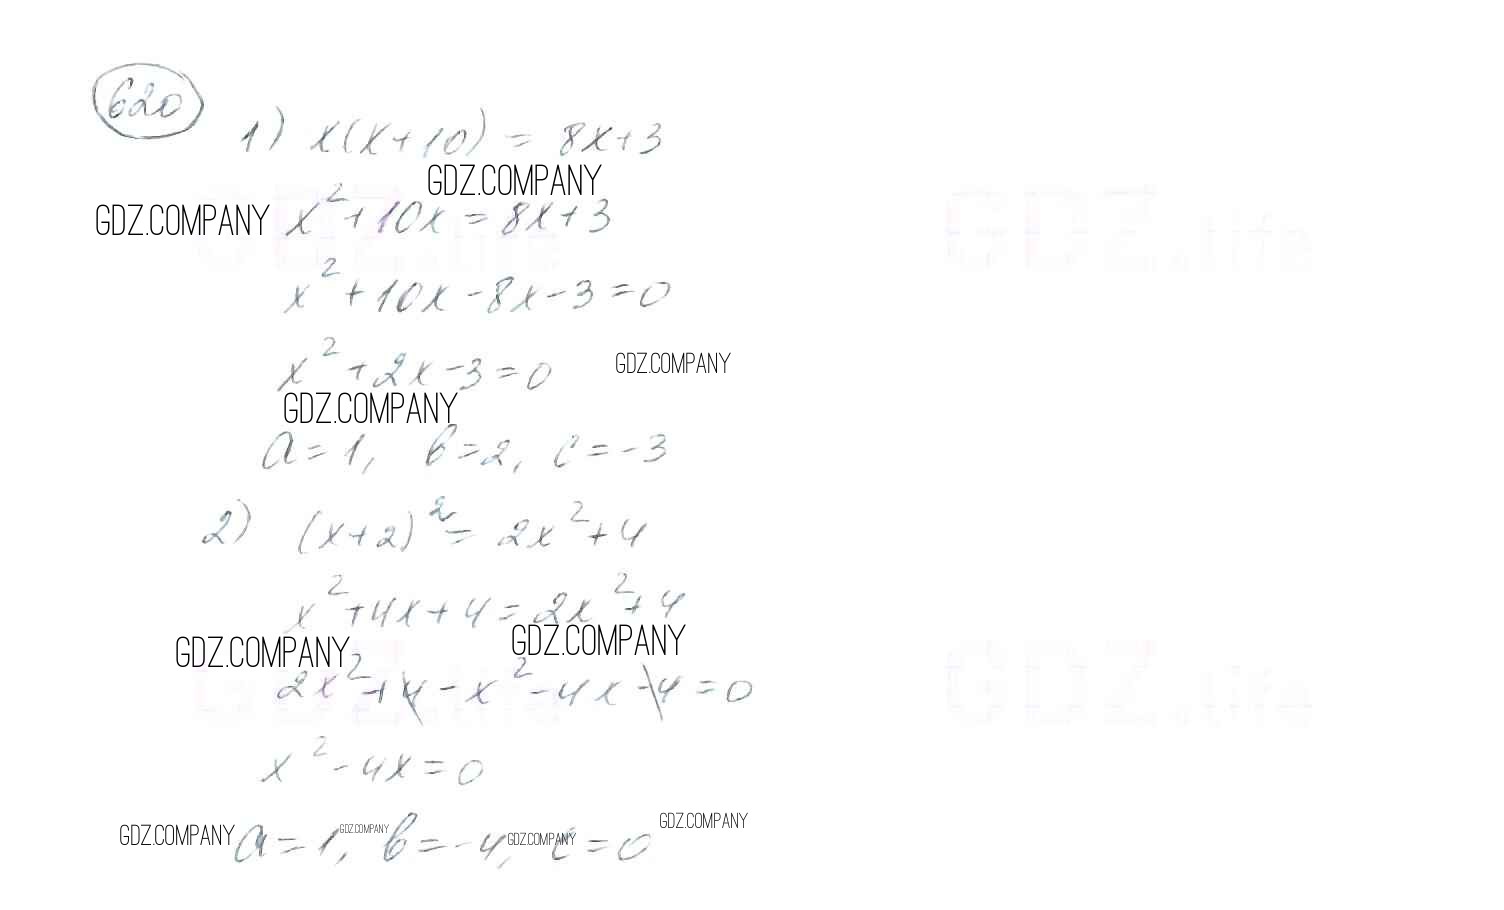 620
1) x(x+10) = 8x+3
GDZ.COMPANY
GDZ.COMPANY x²+10x = 8x+3
GDZ.life GDZ.life
x²+10x-8x-3=0
x²+2x-3=0 GDZ.COMPANY
GDZ.COMPANY
a=1, b=2, c=-3
2) (x+2)²= 2x²+4
x²+4x+4=2x²+4
GDZ.COMPANY GDZ.COMPANY
2x²+4-x²-4x-4=0
GDZ.life GDZ.life
x²-4x=0
GDZ.COMPANY a=1, GDZ.COMPANY b=-4, GDZ.COMPANY c=0 GDZ.COMPANY